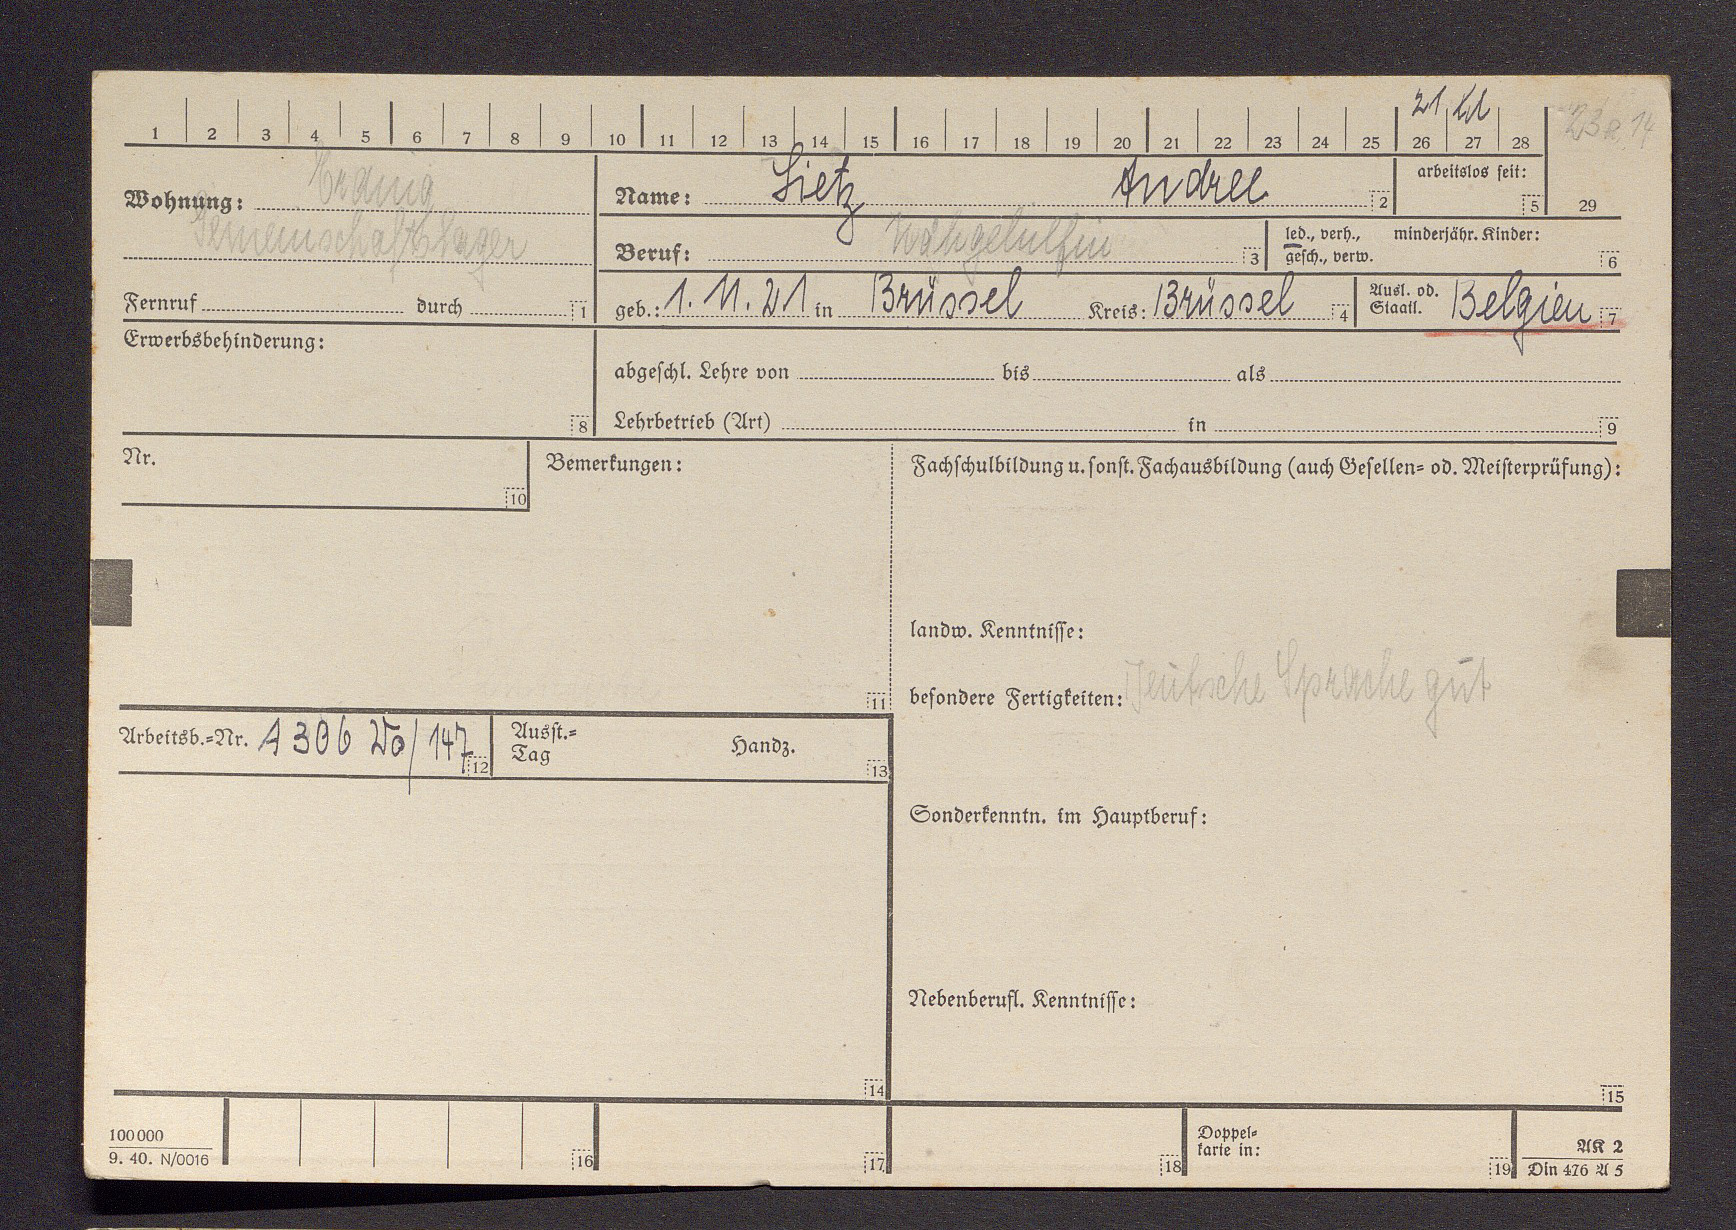 21.
1 2 3 4 5 6 7 8 9 10 11 12 13 14 15 16 17 18 19 20 21 22 23 24 25 26 27 28
Wohnung: Erding
Gemeinschaftslager
Name: Sietz Andree 2
arbeitslos seit: 5 29
Beruf: Nähgehilfin 3
led., verh., minderjähr. Kinder:
gesch., verw. 6
Fernruf durch 1
geb.: 1. 11. 21 in Brüssel Kreis: Brüssel 4
Ausl. od.
Staatl. Belgien 7
Erwerbsbehinderung:
8
abgeschl. Lehre von bis als
Lehrbetrieb (Art) in 9
Nr.
10
Bemerkungen:
11
Fachschulbildung u. sonst. Fachausbildung (auch Gesellen- od. Meisterprüfung):
landw. Kenntnisse:
besondere Fertigkeiten: Deutsche Sprache gut
Arbeitsb.-Nr. A 306 Wo/147 12
Ausst.-
Tag Handz. 13
Sonderkenntn. im Hauptberuf:
Nebenberufl. Kenntnisse:
14
15
100000
9. 40. N/0016
16
17
18
Doppel-
karte in: 19
AK 2
Din 476 A 5